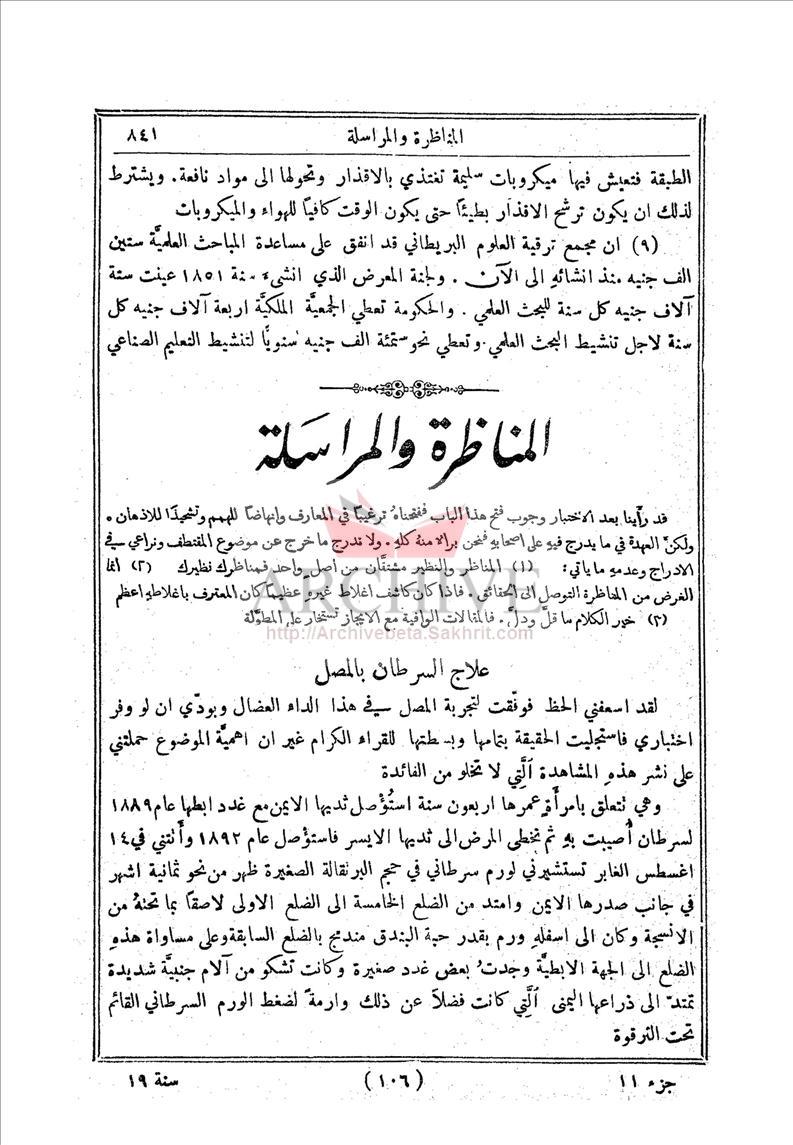 المناظرة والمراسلة ٨٤١
الطبقة فتعيش فيها ميكروبات سليمة تغتذي بالاقذار وتحولها الى مواد نافعة. ويشترط
لذلك ان يكون ترشح الاقذار بطيئًا حتى يكون الوقت كافيًا للهواء والميكروبات
(٩) ان مجمع ترقية العلوم البريطاني قد انفق على مساعدة المباحث العلميَّة ستين
الف جنيه منذ انشائهِ الى الآن. ولجنة المعرض الذي انشئَ سنة ١٨٥١ عينت ستة
آلاف جنيه كل سنة للبحث العلمي. والحكومة تعطي الجمعيَّة الملكيَّة اربعة آلاف جنيه كل
سنة لاجل تنشيط البحث العلمي. وتعطي نحو ستمئة الف جنيه سنويًّا لتنشيط التعليم الصناعي
المناظرة والمراسَلة
قد رأَينا بعد الاختبار وجوب فتح هذا الباب ففتحناهُ ترغيبًا في المعارف وانهاضًا للهمم وتشحيذًا للاذهان.
ولكنَّ العهدة في ما يدرج فيهِ على اصحابهِ فنحن برالا منهُ كلهِ. ولا ندرج ما خرج عن موضوع المقتطف ونراعي في
الادراج وعدمهِ ما ياتي: (١) المناظر والنظير مشتقَّان من اصل واحد فمناظرك نظيرك (٢) انما
الغرض من المناظرة التوصل الى الحقائق. فاذا كان كاشف اغلاط غيرهِ عظيمًا كان المعترف باغلاطهِ اعظم
(٣) خير الكلام ما قلَّ ودلَّ. فالمقالات الوافية مع الايجاز تستخار على المطوَّلة
ARCHIVE
http://Archivebeta.Sakhrit.com
علاج السرطان بالمصل
لقد اسعفني الحظ فوفّقت لتجربة المصل في هذا الداء العضال وبودّي ان لو وفر
اختباري فاستجليت الحقيقة بتمامها وبسطتها للقراء الكرام غير ان اهميَّة الموضوع حملتني
على نشر هذهِ المشاهدة الَّتي لا تخلو من الفائدة
وهي تتعلق بامرأَةٍ عمرها اربعون سنة استُؤْصل ثديها الايمن مع غدد ابطها عام ١٨٨٩
لسرطان أُصيبت بهِ ثم تخطى المرض الى ثديها الايسر فاستؤصل عام ١٨٩٢ وأَتتني في ١٤
اغسطس الغابر تستشيرني لورم سرطاني في حجم البرتقالة الصغيرة ظهر من نحو ثمانية اشهر
في جانب صدرها الايمن وامتد من الضلع الخامسة الى الضلع الاولى لاصقًا بما تحتهُ من
الانسجة وكان الى اسفلهِ ورم بقدر حبة البندق مندمج بالضلع السابقة وعلى مساواة هذهِ
الضلع الى الجهة الابطيَّة وجدتُ بعض غدد صغيرة وكانت تشكو من آلام جنبيَّة شديدة
تمتدّ الى ذراعها اليمنى الَّتي كانت فضلاً عن ذلك وارمةً لضغط الورم السرطاني القائم
تحت الترقوة
جزء ١١ (١٠٦) سنة ١٩